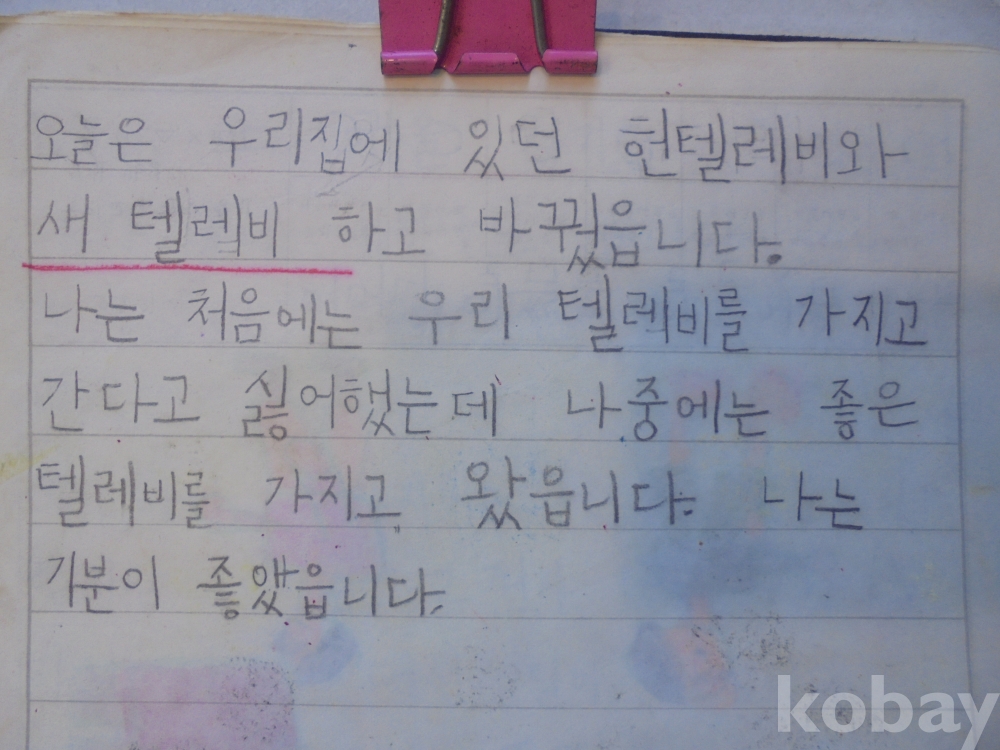 오늘은 우리집에 있던 헌텔레비와
새 텔레비 하고 바꿨읍니다.
나는 처음에는 우리 텔레비를 가지고
간다고 싫어했는데 나중에는 좋은
텔레비를 가지고 왔읍니다. 나는
기분이 좋았읍니다.
kobay